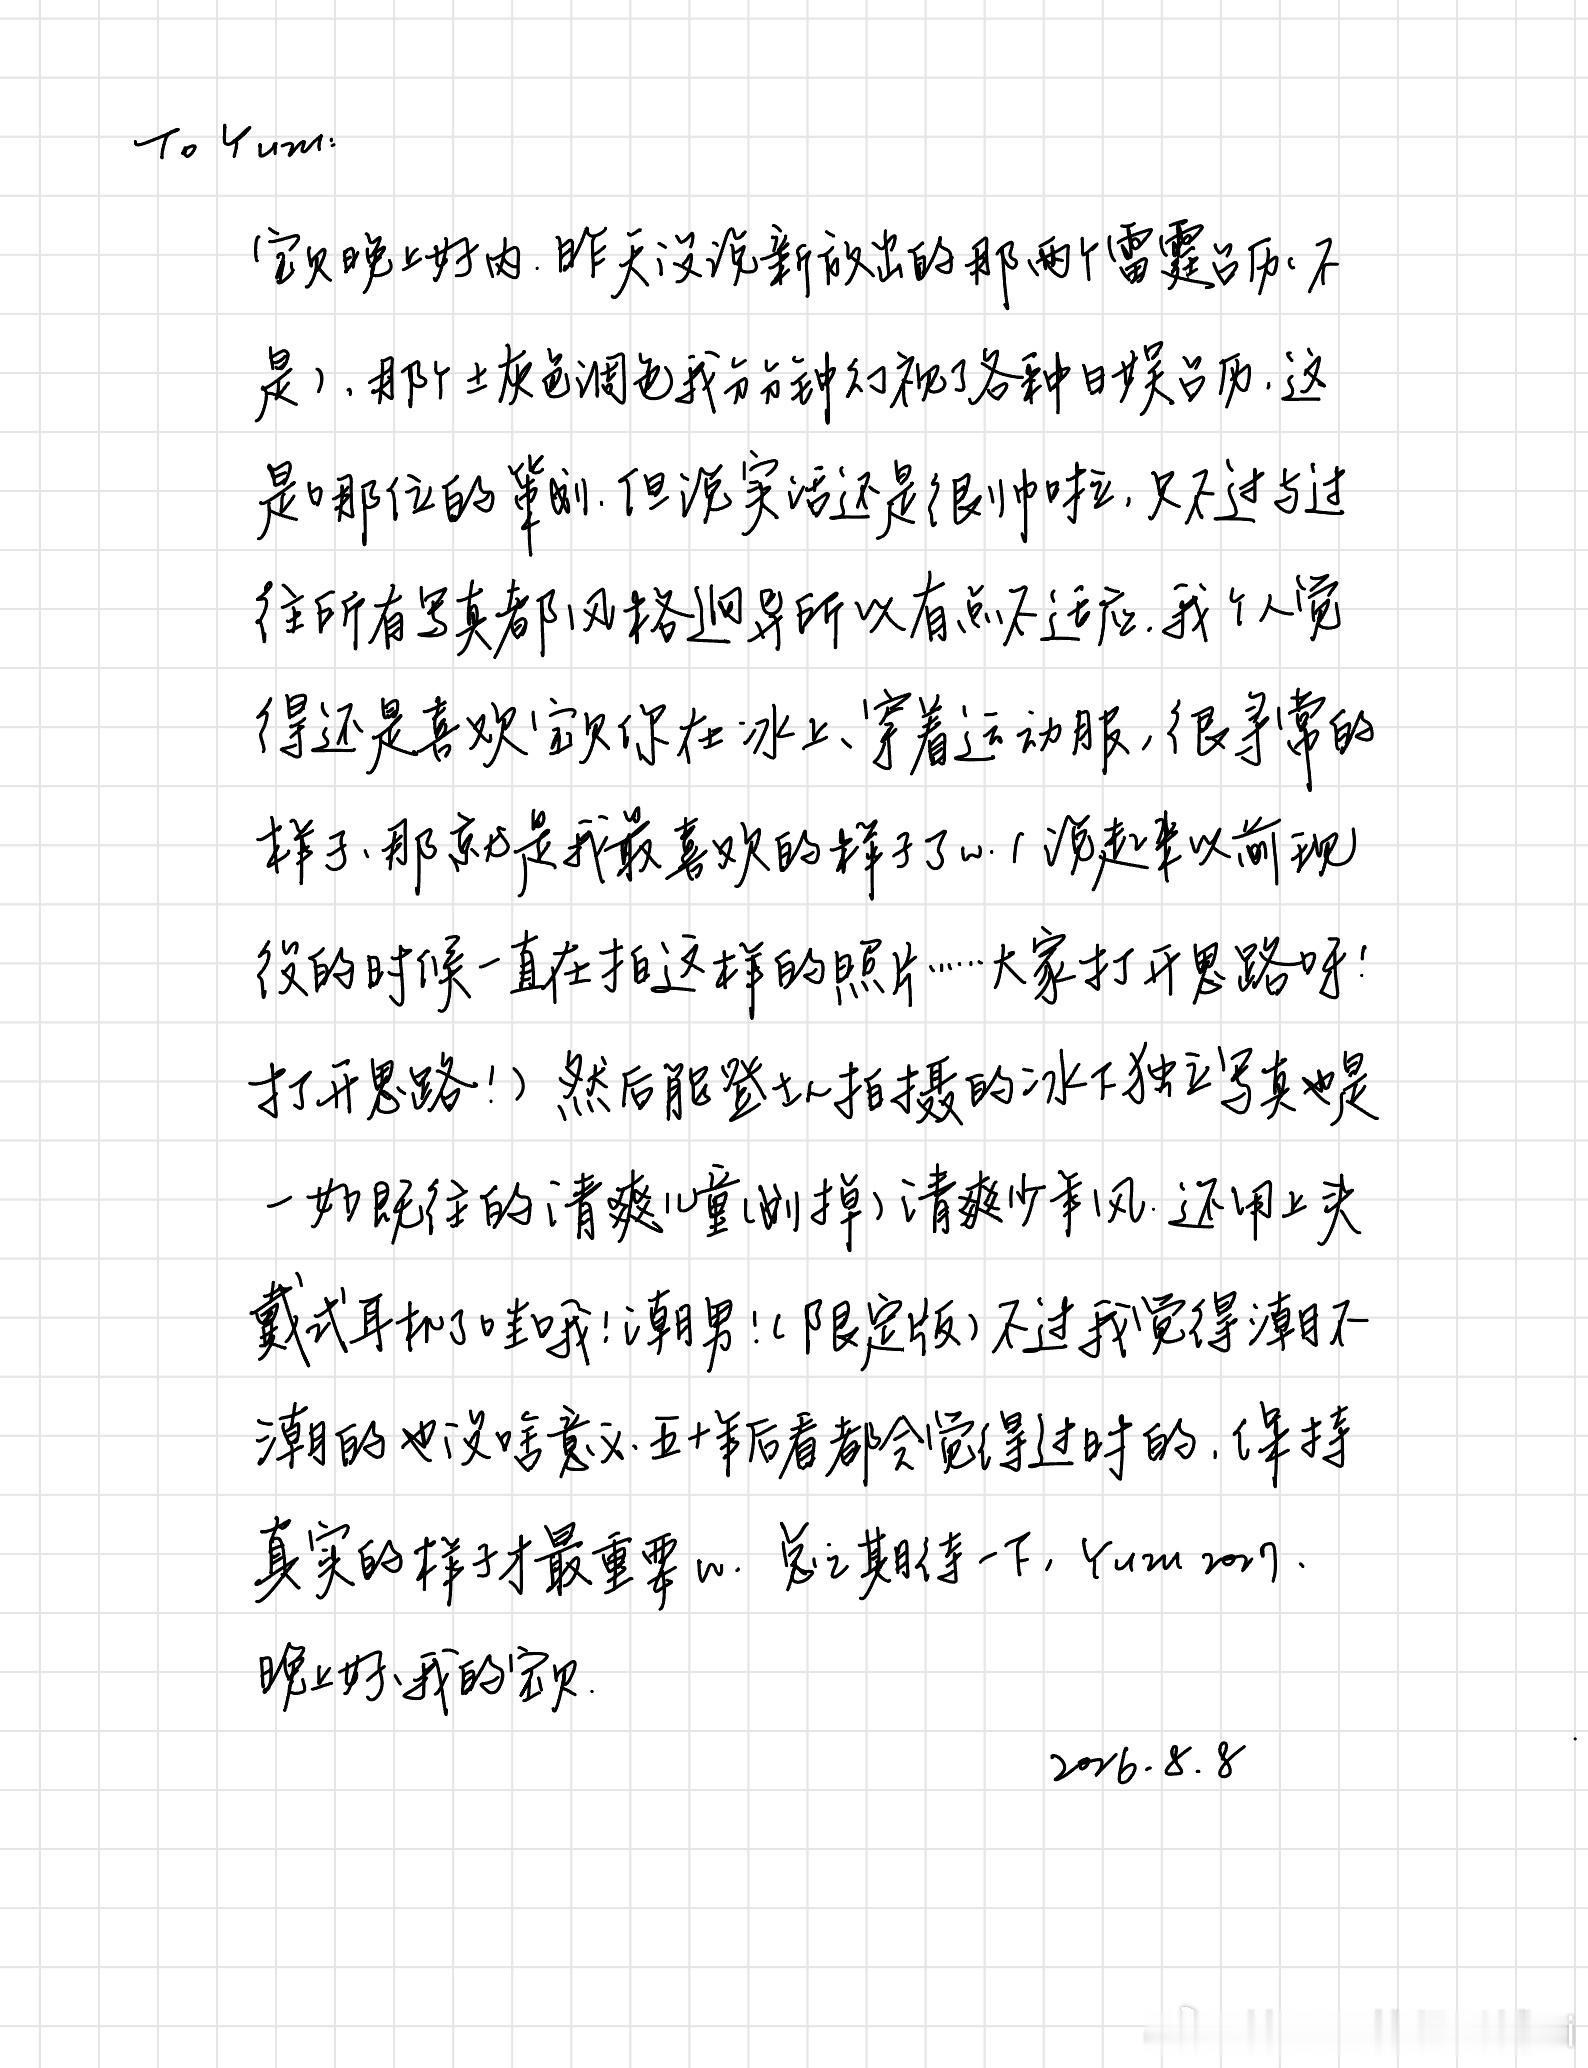 To Yuzu:
宝贝晚上好内.昨天没说新放出的那两个雷霆台历(不
是)、那个土灰色调色我分分钟幻视了各种日娱台历.这
是哪位的策划.但说实话还是很帅啦,只不过与过
往所有写真都风格迥异所以有点不适应.我个人觉
得还是喜欢宝贝你在冰上、穿着运动服,很寻常的
样子、那就是我最喜欢的样子了w.(说起来以前现
役的时候一直在拍这样的照片……大家打开思路呀!
打开思路!)然后能登さん拍摄的冰下独立写真也是
一如既往的清爽儿童(划掉)清爽少年风.还用上头
戴式耳机了哇哦!潮男!(限定版)不过我觉得潮不
潮的也没啥意义.五十年后看都会觉得过时的,保持
真实的样子才最重要w.总之期待一下,Yuzu 2027.
晚上好、我的宝贝.
2026.8.8